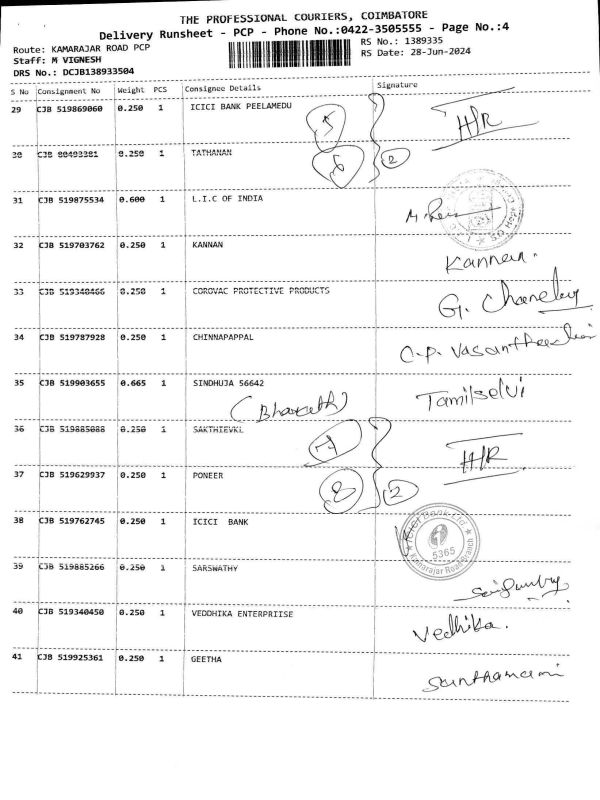 THE PROFESSIONAL COURIERS, COIMBATORE
Delivery Runsheet - PCP - Phone No.:0422-3505555 - Page No.:4
Route: KAMARAJAR ROAD PCP
RS No.: 1389335
Staff: M VIGNESH
RS Date: 28-Jun-2024
DRS No.: DCJB138933504
S No Consignment No Weight PCS Consignee Details Signature
29 CJB 519869060 0.250 1 ICICI BANK PEELAMEDU 5 H/R
30 CJB 80493381 0.250 1 TATHANAN 6 2
31 CJB 519875534 0.600 1 L.I.C OF INDIA
32 CJB 519703762 0.250 1 KANNAN Kannan.
33 CJB 519340466 0.250 1 COROVAC PROTECTIVE PRODUCTS G.
34 CJB 519787928 0.250 1 CHINNAPAPPAL C.P. 
35 CJB 519903655 0.665 1 SINDHUJA 56642 Tamilselvi
(Bharath)
36 CJB 519885088 0.250 1 SAKTHIEVKL 7 H/R
37 CJB 519629937 0.250 1 PONEER 8 2
38 CJB 519762745 0.250 1 ICICI BANK ICICI Bank Ltd. 5365 Kamarajar Road Branch
39 CJB 519885266 0.250 1 SARSWATHY
40 CJB 519340450 0.250 1 VEDDHIKA ENTERPRIISE Vedhika.
41 CJB 519925361 0.250 1 GEETHA Santhamani